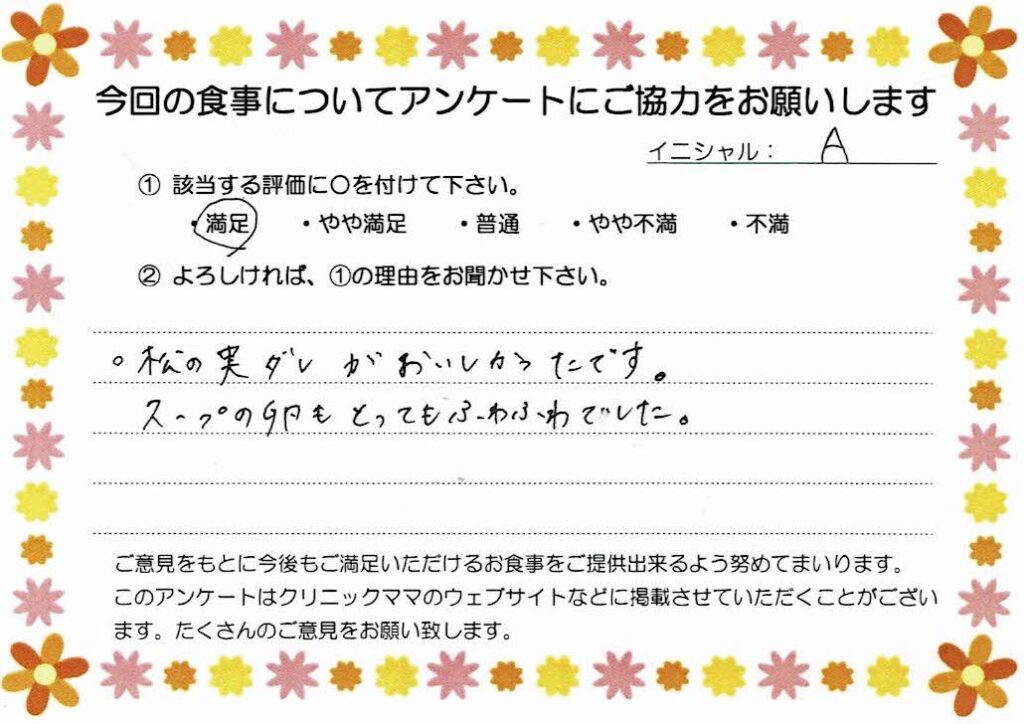 今回の食事についてアンケートにご協力をお願いします
イニシャル： A
① 該当する評価に〇を付けて下さい。
・満足 ・やや満足 ・普通 ・やや不満 ・不満
② よろしければ、①の理由をお聞かせ下さい。
。松の実ダレがおいしかったです。
スープの卵もとってもふわふわでした。
ご意見をもとに今後もご満足いただけるお食事をご提供出来るよう努めてまいります。
このアンケートはクリニックママのウェブサイトなどに掲載させていただくことがござい
ます。たくさんのご意見をお願い致します。